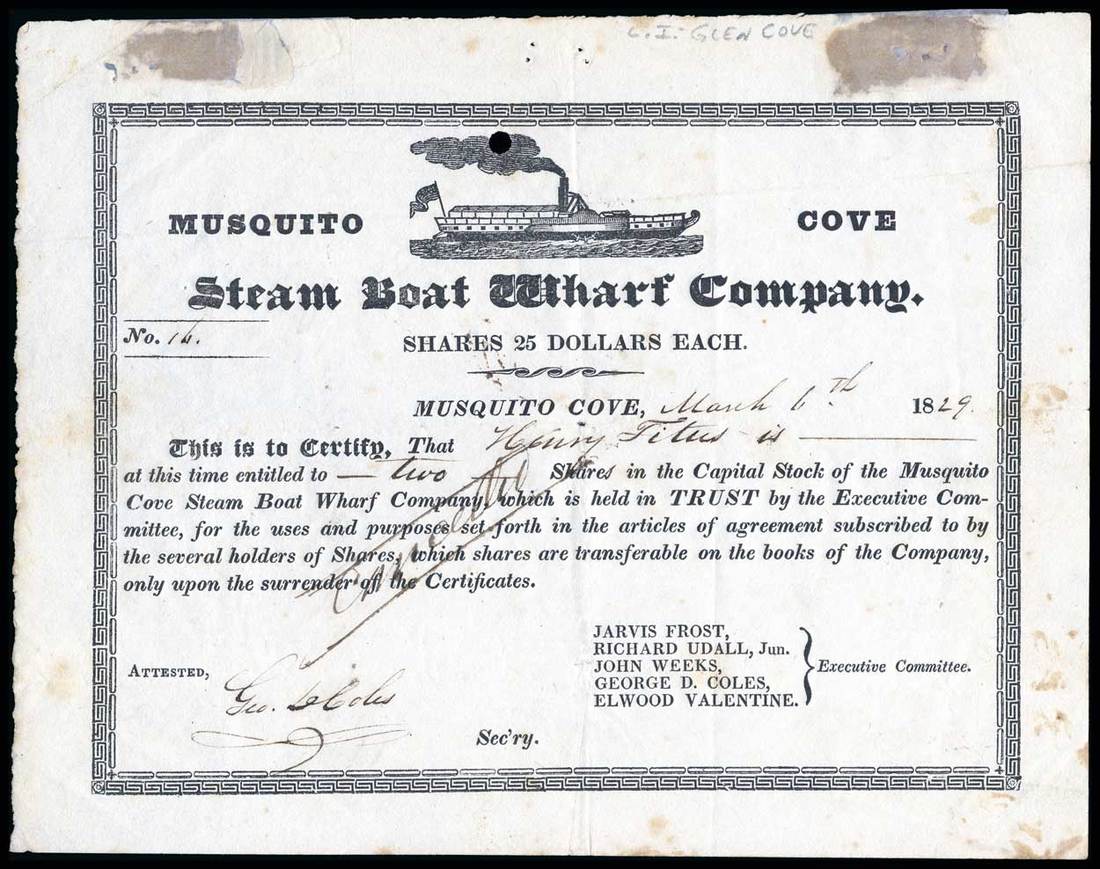 L. I. GLEN COVE
MUSQUITO COVE
Steam Boat Wharf Company.
No. 16.
SHARES 25 DOLLARS EACH.
MUSQUITO COVE, March 6th 1829.
This is to Certify, That Henry Titus is
at this time entitled to — two Shares in the Capital Stock of the Musquito
Cove Steam Boat Wharf Company, which is held in TRUST by the Executive Com-
mittee, for the uses and purposes set forth in the articles of agreement subscribed to by
the several holders of Shares, which shares are transferable on the books of the Company,
only upon the surrender of the Certificates.
JARVIS FROST,
RICHARD UDALL, Jun.
JOHN WEEKS,
GEORGE D. COLES,
ELWOOD VALENTINE.
Executive Committee.
ATTESTED,
Geo. D Coles
Sec'ry.